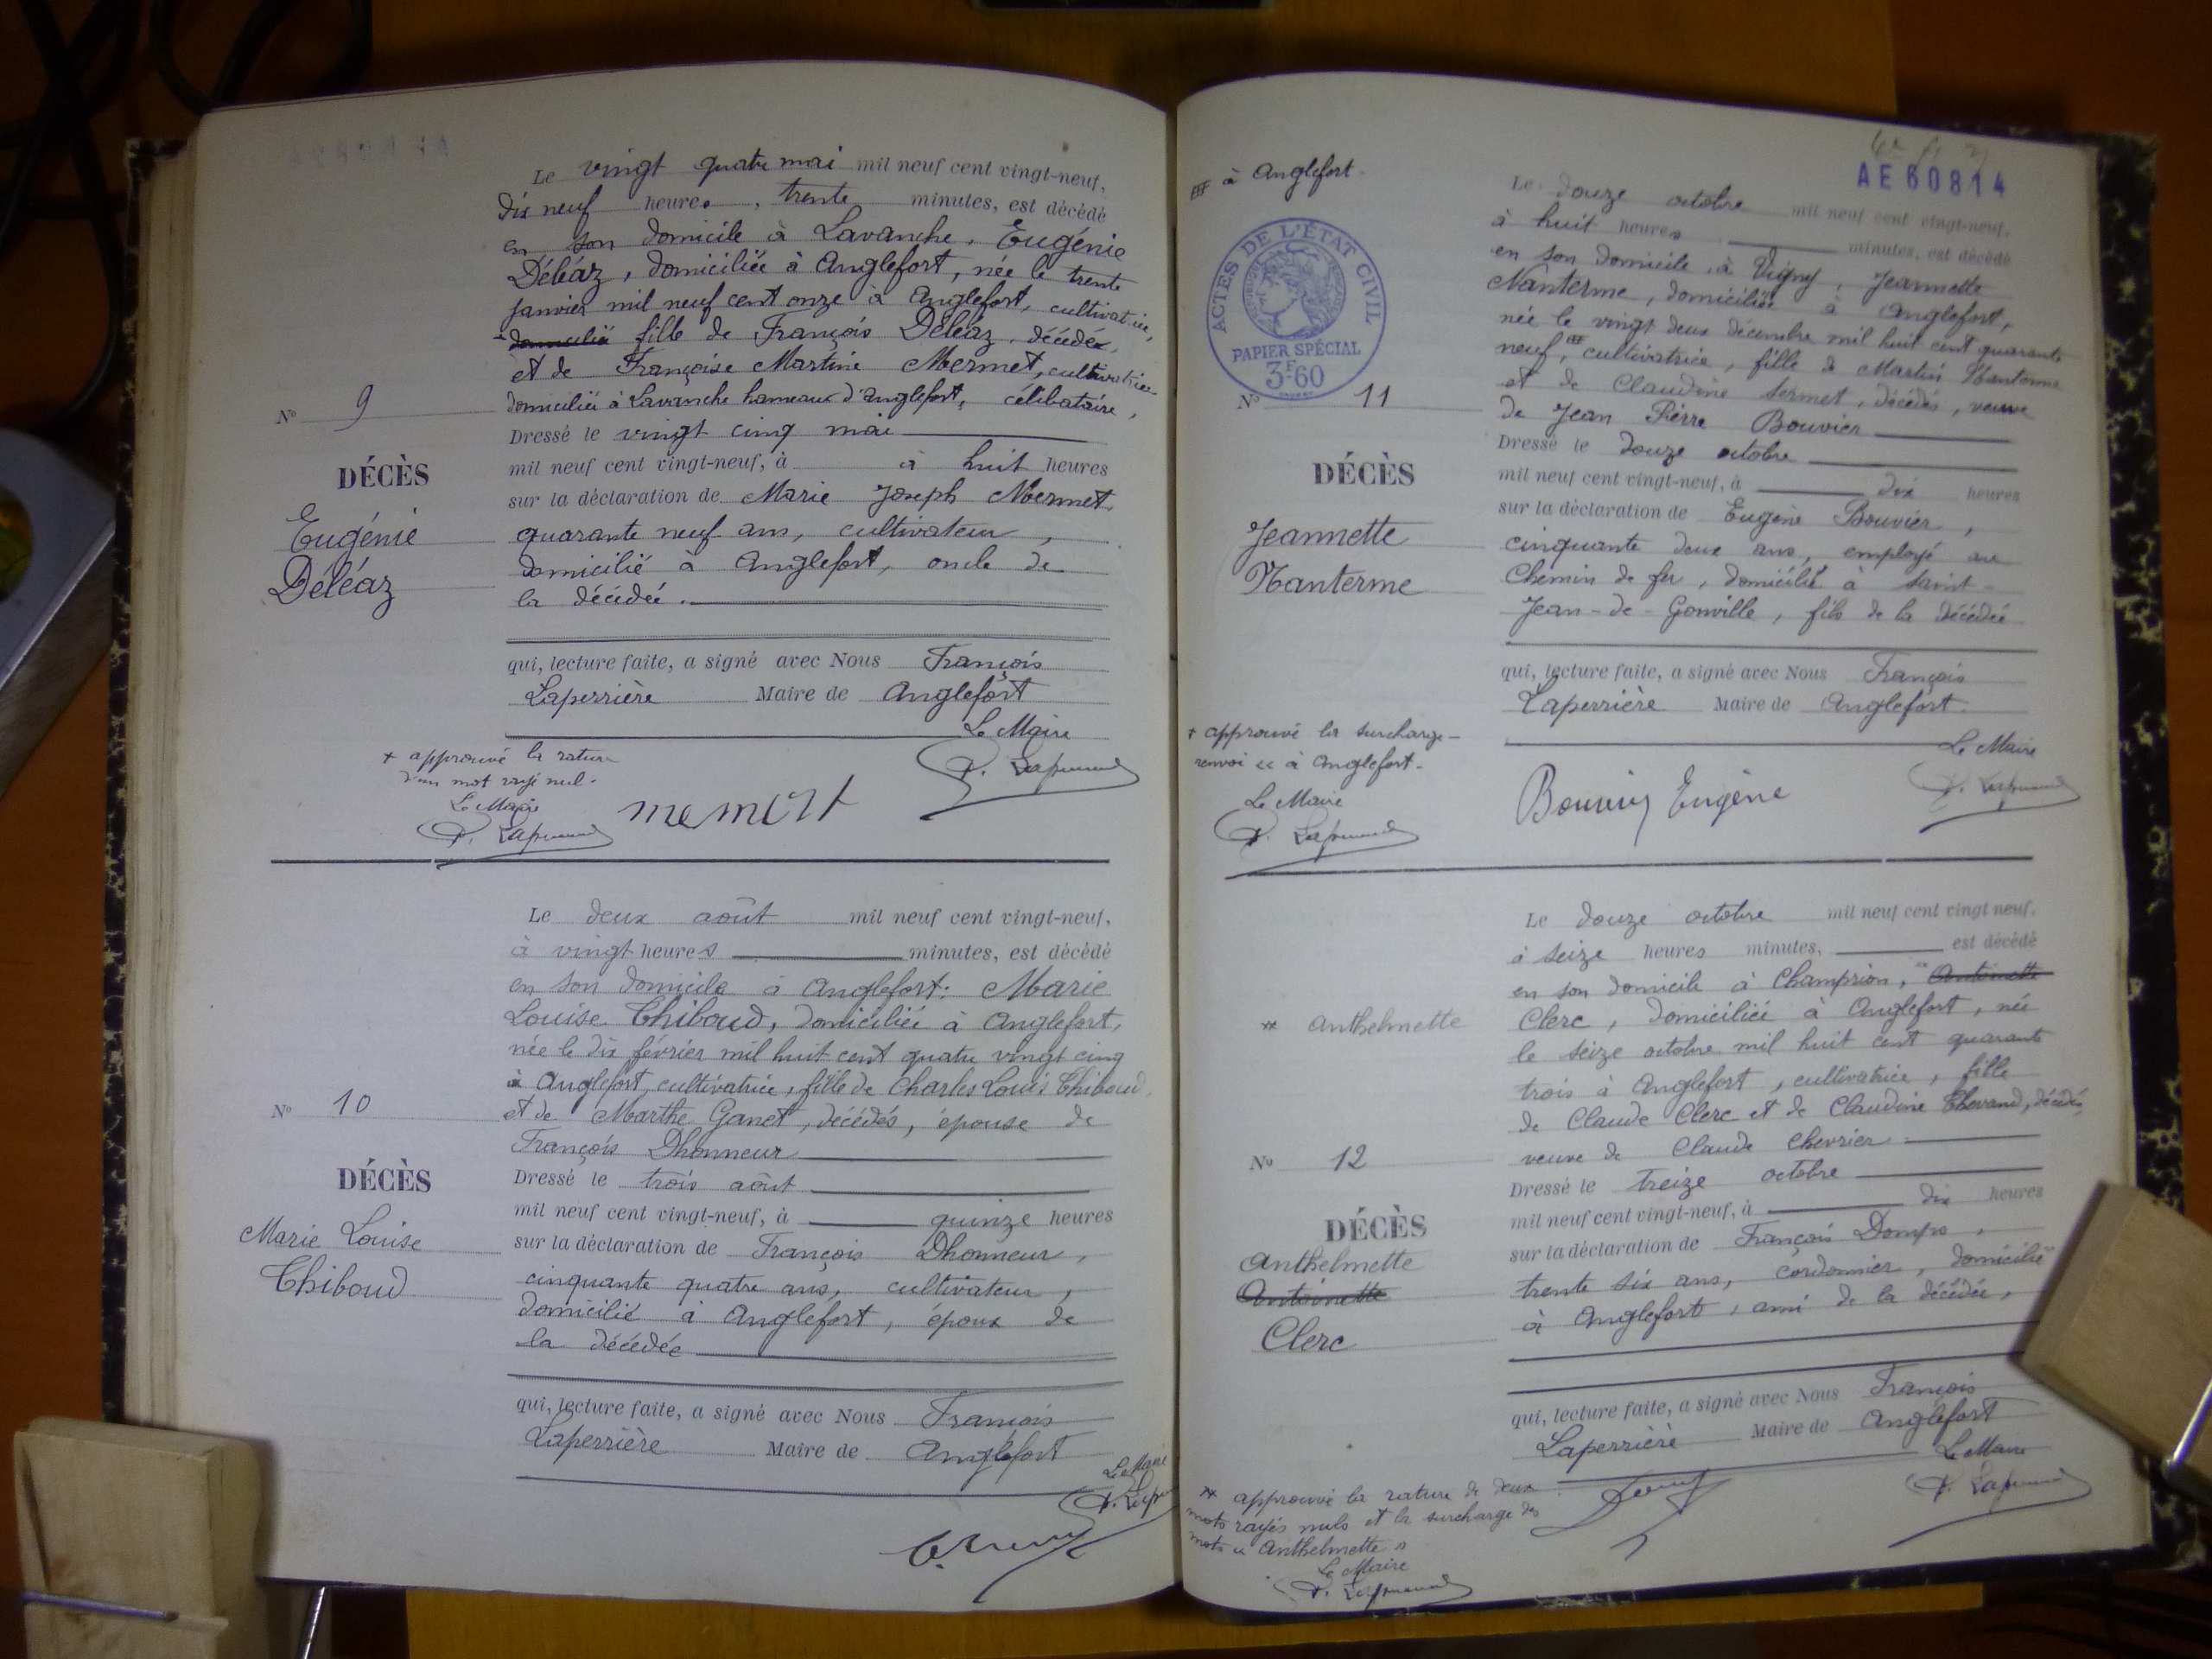 Le vingt quatre mai mil neuf cent vingt-neuf,
dix neuf heures, trente minutes, est décédé
en son domicile à Lavanche, Eugénie
Déléaz, domiciliée à Anglefort, née le trente
janvier mil neuf cent onze à Anglefort, cultivatrice,
domicilié fille de François Déléaz, décédé,
et de Françoise Martine Mermet, cultivatrice
domiciliée à Lavanche hameau d'Anglefort, célibataire,
No 9
Dressé le vingt cinq mai
mil neuf cent vingt-neuf, à à huit heures
DÉCÈS
sur la déclaration de Marie Joseph Mermet,
Eugénie
Déléaz
quarante neuf ans, cultivateur,
domicilié à Anglefort, oncle de
la décédée.
qui, lecture faite, a signé avec Nous François
Laperrière Maire de Anglefort
Le Maire
+ approuvé la rature
d'un mot rayé nul.
Le Maire
Le deux août mil neuf cent vingt-neuf,
à vingt heures minutes, est décédé
en son domicile à Anglefort: Marie
Louise Thiboud, domiciliée à Anglefort,
née le dix février mil huit cent quatre vingt cinq
à Anglefort, cultivatrice, fille de Charles Louis Thiboud,
No 10
et de Marthe Ganet, décédés, épouse de
François Dhonneur
DÉCÈS
Dressé le trois août
mil neuf cent vingt-neuf, à quinze heures
Marie Louise
Thiboud
sur la déclaration de François Dhonneur,
cinquante quatre ans, cultivateur,
domicilié à Anglefort, époux de
la décédée
qui, lecture faite, a signé avec Nous François
Laperrière Maire de Anglefort
Le Maire
AE 60814
à Anglefort.
ACTES DE L'ÉTAT CIVIL
PAPIER SPÉCIAL
3F60
Le douze octobre mil neuf cent vingt-neuf,
à huit heures minutes, est décédé
en son domicile, à Vigny, Jeannette
Nanterme, domiciliée à Anglefort,
née le vingt deux décembre mil huit cent quarante
neuf, cultivatrice, fille de Martin Nanterme
et de Claudine Sermet, décédés, veuve
No 11
de Jean Pierre Bouvier
Dressé le douze octobre
DÉCÈS
mil neuf cent vingt-neuf, à dix heures
sur la déclaration de Eugène Bouvier,
Jeannette
Nanterme
cinquante deux ans, employé au
Chemin de fer, domicilié à Saint-
Jean-de-Gonville, fils de la décédée
qui, lecture faite, a signé avec Nous François
Laperrière Maire de Anglefort.
Le Maire
+ approuvé la surcharge-
renvoi « à Anglefort.
Le Maire
Bouvier Eugène
Le douze octobre mil neuf cent vingt-neuf,
à seize heures minutes, est décédé
en son domicile à Champrion, Antoinette
Anthelmette
Clerc, domiciliée à Anglefort, née
le seize octobre mil huit cent quarante
trois à Anglefort, cultivatrice, fille
de Claude Clerc et de Claudine décédés,
No 12
veuve de Claude Chevrier
Dressé le treize octobre
mil neuf cent vingt-neuf, à dix heures
DÉCÈS
Anthelmette
Antoinette
Clerc
sur la déclaration de François
trente six ans, cordonnier, domicilié
à Anglefort, ami de la décédée,
qui, lecture faite, a signé avec Nous François
Laperrière Maire de Anglefort
Le Maire
approuvé la rature de deux
mots rayés nuls et la surcharge des
mots « Anthelmette »
Le Maire